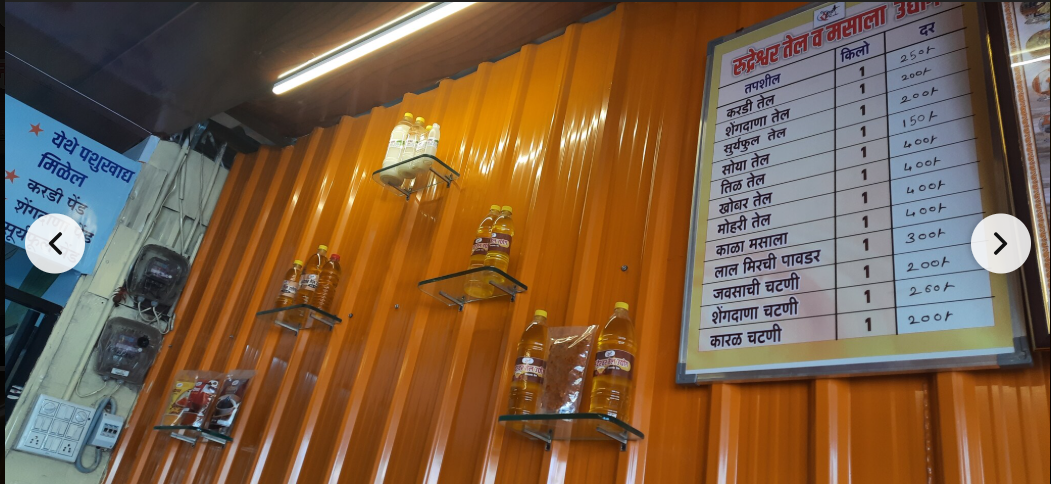 येथे पशुखाद्य
मिळेल
करडी पेंड
रुद्रेश्वर तेल व मसाला
तपशील किलो दर
करडी तेल 1 250/-
शेंगदाणा तेल 1 200/-
सुर्यफुल तेल 1 200/-
सोया तेल 1 150/-
तिळ तेल 1 400/-
खोबर तेल 1 400/-
मोहरी तेल 1 400/-
काळा मसाला 1 400/-
लाल मिरची पावडर 1 300/-
जवसाची चटणी 1 200/-
शेंगदाणा चटणी 1 260/-
कारळ चटणी 1 200/-